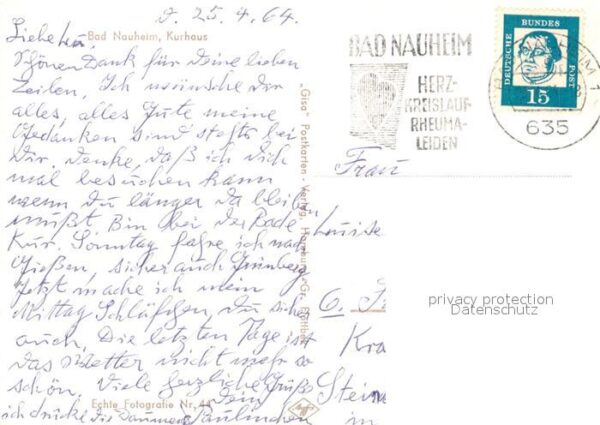 d. 25.4.64.
Bad Nauheim, Kurhaus
Schönen Dank für Deine lieben
Zeilen, Ich wünsche Dir
alles, alles Gute meine
Gedanken sind stehts bei
Dir. Denke, daß ich Dich
mal besuchen kann
wenn Du länger da bleiben
mußt. Bin bei der Bade
Kur. Sonntag fahre ich nach
Gießen, sicher auch Grünberg
Jetzt mache ich mein
Mittag Schläfchen, Du sicher
auch. Die letzten Tage ist
das Wetter nicht mehr so
schön. Viele herzliche Grüße
Dein
Echte Fotografie Nr.
ich drücke die Daumen Paulinchen
"Gisa" Postkarten - Verlag,
Agfa
BAD NAUHEIM
HERZ-
KREISLAUF-
RHEUMA-
LEIDEN
DEUTSCHE BUNDESPOST
15
635
Frau
Luise
privacy protection
Datenschutz
in